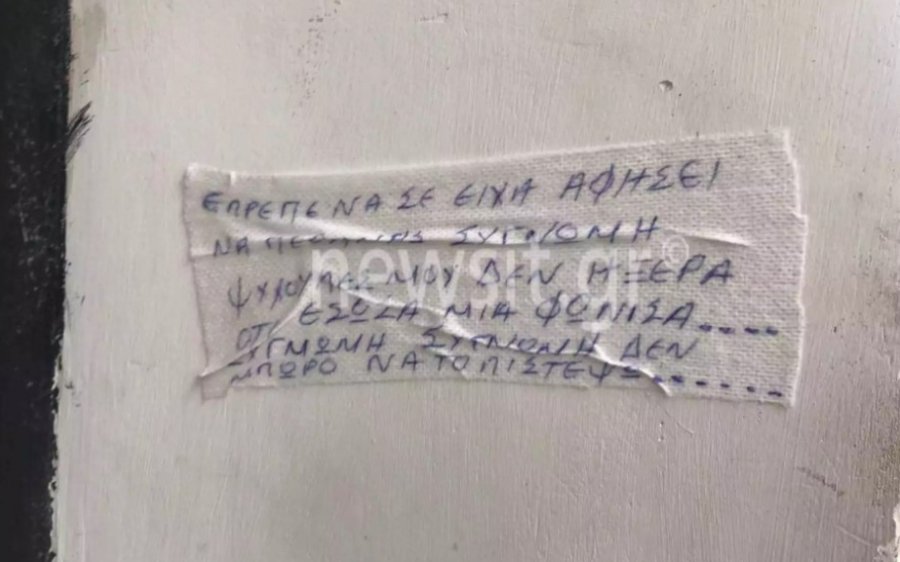 ΕΠΡΕΠΕ ΝΑ ΣΕ ΕΙΧΑ ΑΦΗΣΕΙ
ΝΑ ΣΥΓΝΩΜΗ
ΨΥΧΟΥΛΕΣ ΜΟΥ ΔΕΝ ΗΞΕΡΑ
ΟΤΙ ΕΣΩΣΑ ΜΙΑ ΦΩΝΙΣΑ....
ΣΥΓΜΩΜΗ ΣΥΓΝΩΜΗ ΔΕΝ
ΜΠΩΡΟ ΝΑ ΤΟ ΠΙΣΤΕΨΩ.......
newsit.gr®